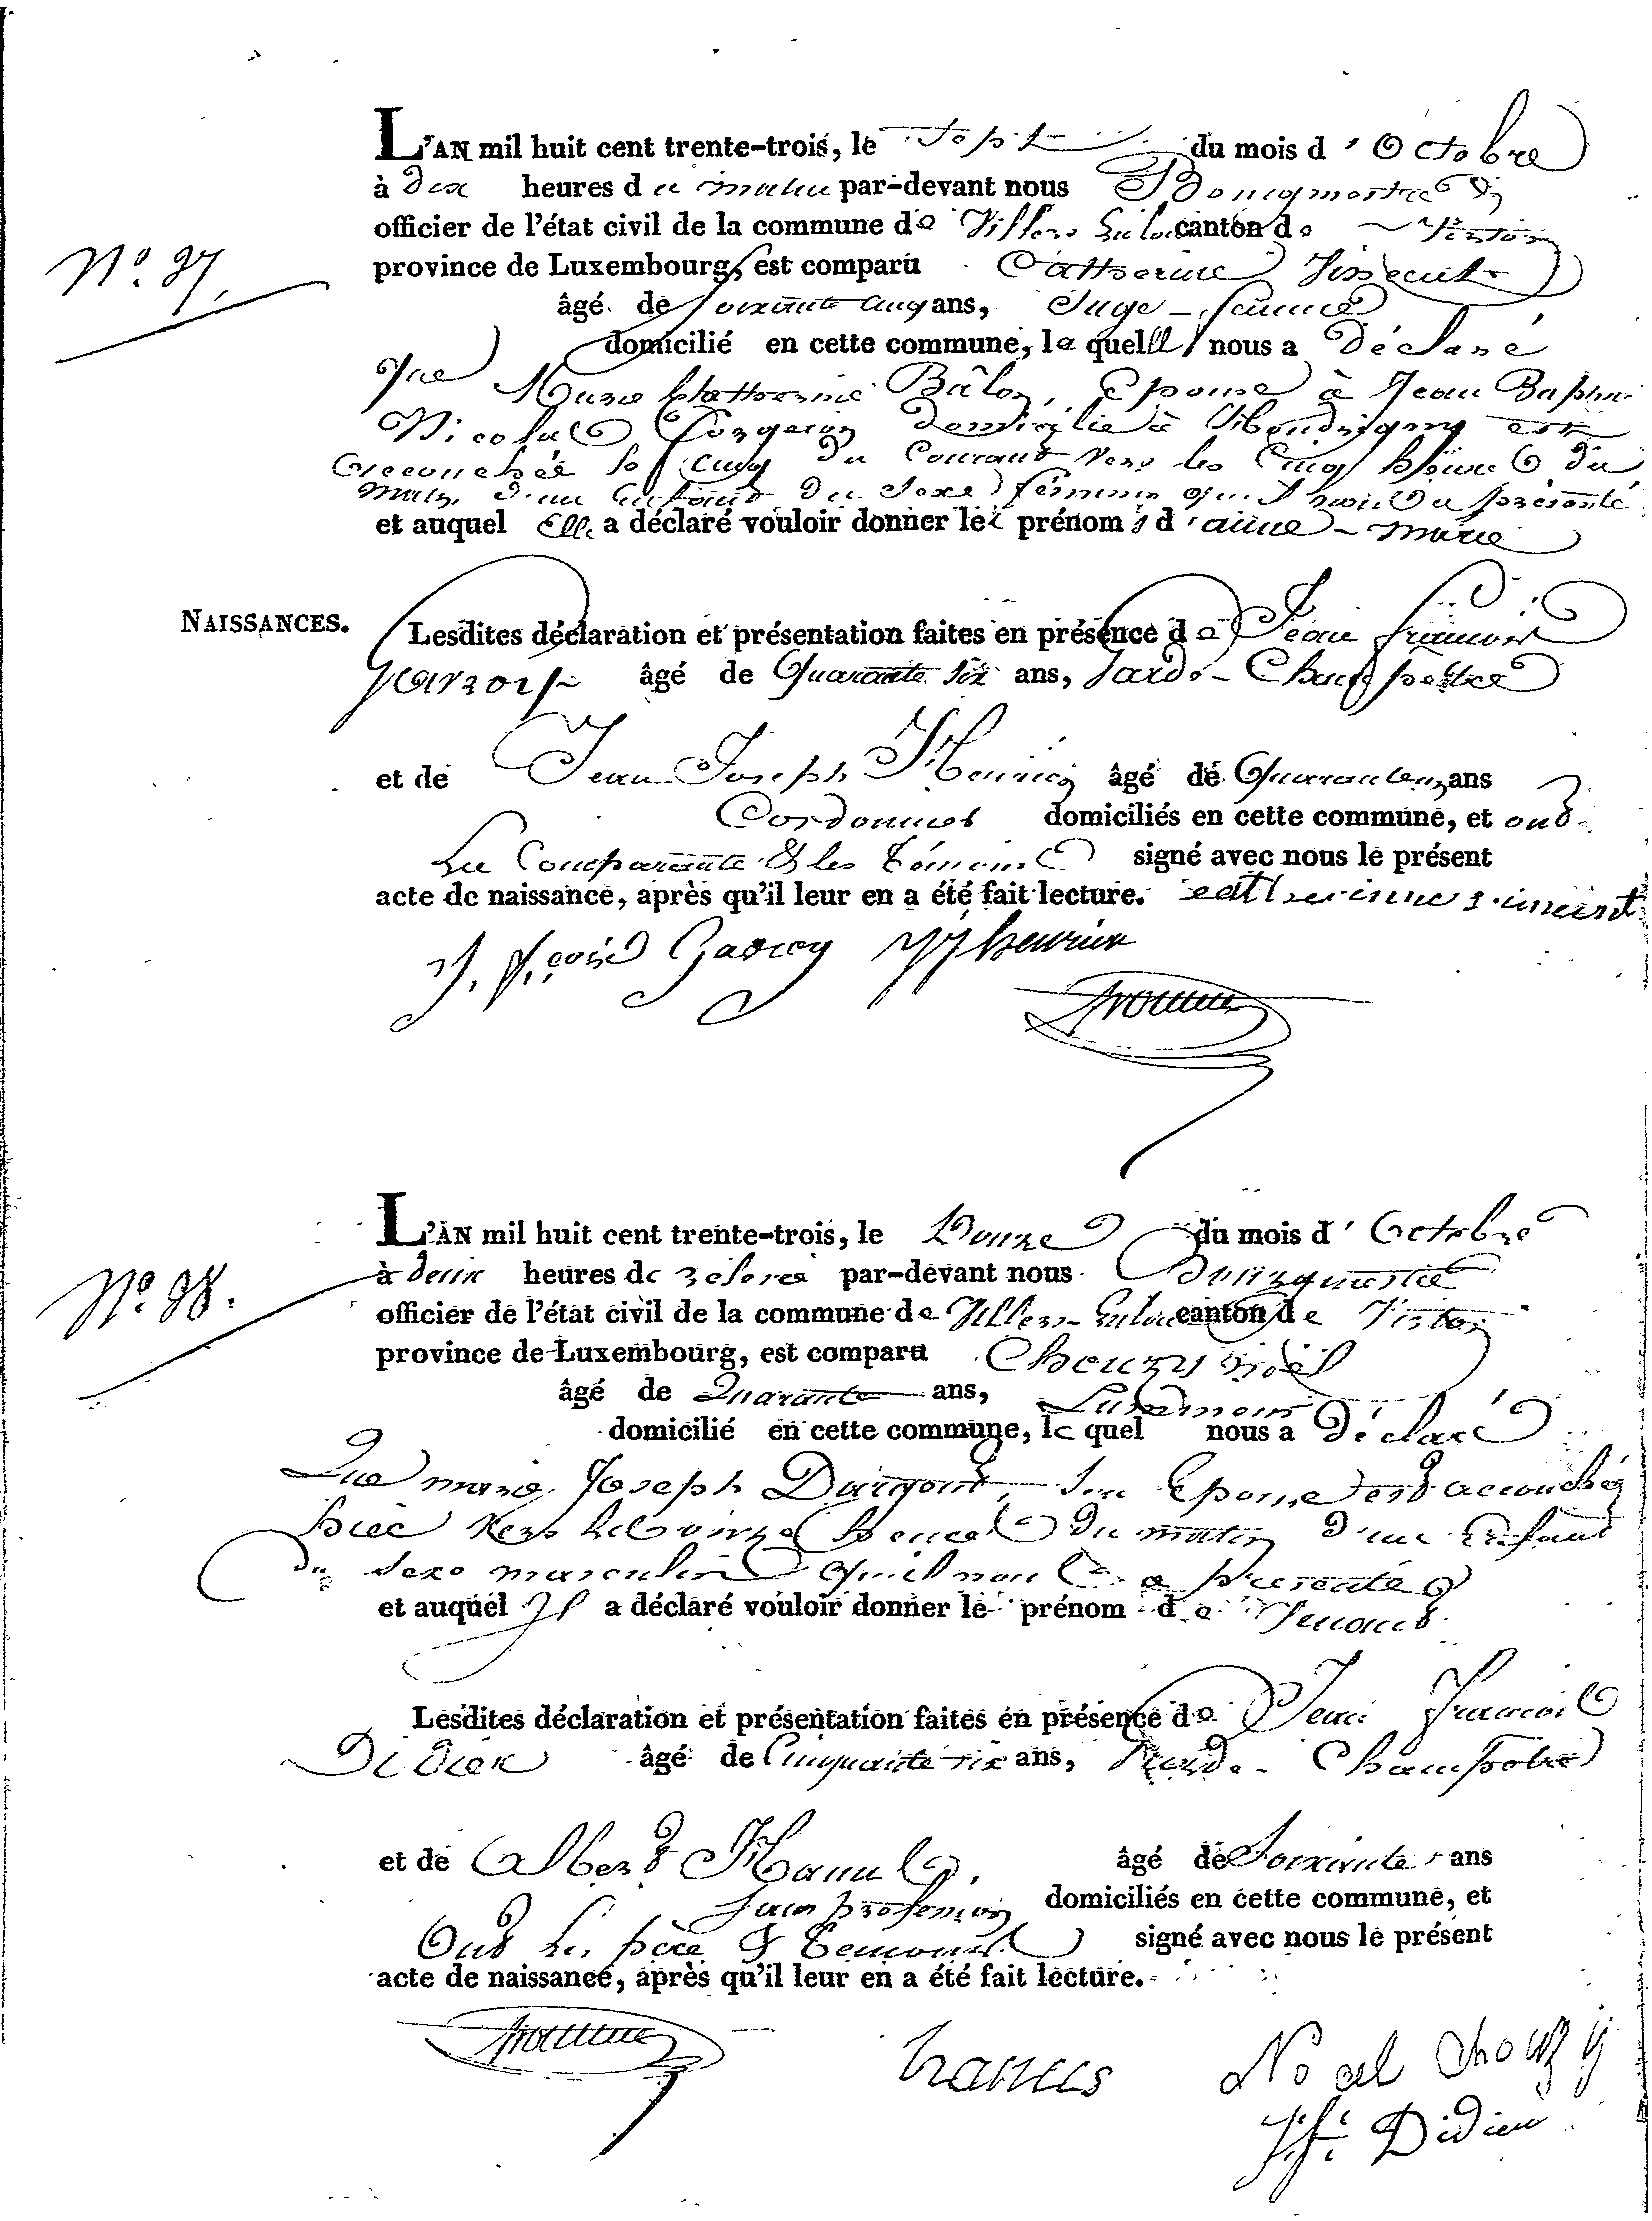 L'AN mil huit cent trente-trois, le Sept du mois d'Octobre
à dix heures du matin par-devant nous Bourgmestre
officier de l'état civil de la commune de Villers canton de Virton
N.º 97.
province de Luxembourg, est comparu Catherine
âgé de soixante cinq ans, Sage-femme
domicilié en cette commune, la quelle nous a Déclaré
que Marie Catherine Bâlon, Epouse à Jean Baptiste
Nicolas Forgeron domicilié à est
accouchée le cinq du Courant vers les Cinq heures du
matin d'un Enfant du Sexe féminin qu' présenté
et auquel Elle a déclaré vouloir donner les prénoms d'anne-marie
NAISSANCES.
Lesdites déclaration et présentation faites en présence de Jean françois
âgé de Quarante six ans, Garde-Champêtre
et de Jean Joseph Henrion âgé de ans
Cordonnier domiciliés en cette commune, et ont
La Comparante & les témoins signé avec nous le présent
acte de naissance, après qu'il leur en a été fait lecture.
L'AN mil huit cent trente-trois, le Douze du mois d'Octobre
N.º 98.
à deux heures de relevée par-devant nous Bourgmestre
officier de l'état civil de la commune de Villers- canton de Virton
province de Luxembourg, est comparu Chouzy Noël
âgé de Quarante ans,
domicilié en cette commune, le quel nous a Déclaré
Que marie Joseph son Epouse est accouchée
hier vers les onze heures du matin d'un Enfant
du sexe masculin qu'il nous a présenté
et auquel Il a déclaré vouloir donner le prénom de
Lesdites déclaration et présentation faites en présence de Jean François
Didier âgé de Cinquante six ans, Garde-Champêtre
et de Albert Hanus, âgé de Soixante ans
sans profession domiciliés en cette commune, et
Ont Le père & témoins signé avec nous le présent
acte de naissance, après qu'il leur en a été fait lecture.
hanus No el Chouzy
Didier